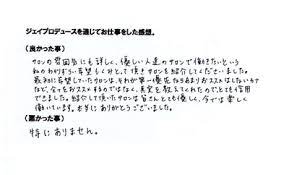 ジェイプロデュースを通じてお仕事をした感想。
(良かった事)
サロンの雰囲気にも詳しく、優しい人達のサロンで働きたいという
私のわがままな希望もくみとって頂きサロンを紹介してくださいました。
最初に希望していたサロンは、それが第一優先ならあまりおススメはしないカナ
など、全々おススメするのではなく、真実を教えてくれたのでとても信用
できました。紹介して頂いたサロンは皆さんとても優しく、今では楽しく
働いています。本当にありがとうございました。
(悪かった事)
特にありません。